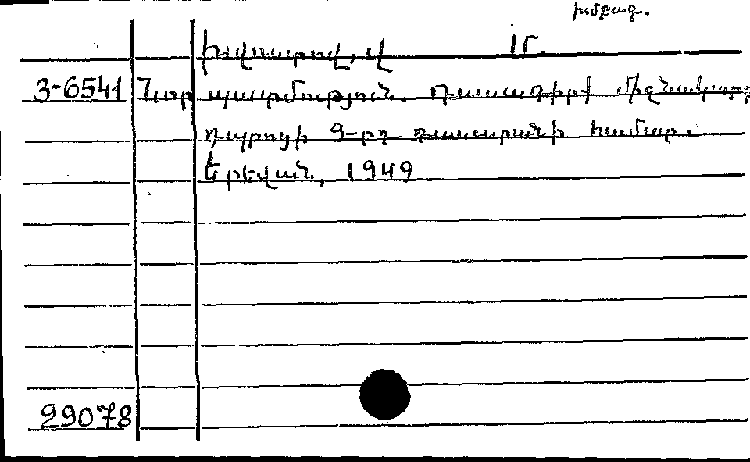 խմբագ.
Խվոստով, Վ. Մ.
3-6541 Նոր պատմություն. Դասագիրք միջնակարգ
դպրոցի 9-րդ դասարանի համար.
Երեվան, 1949
29078